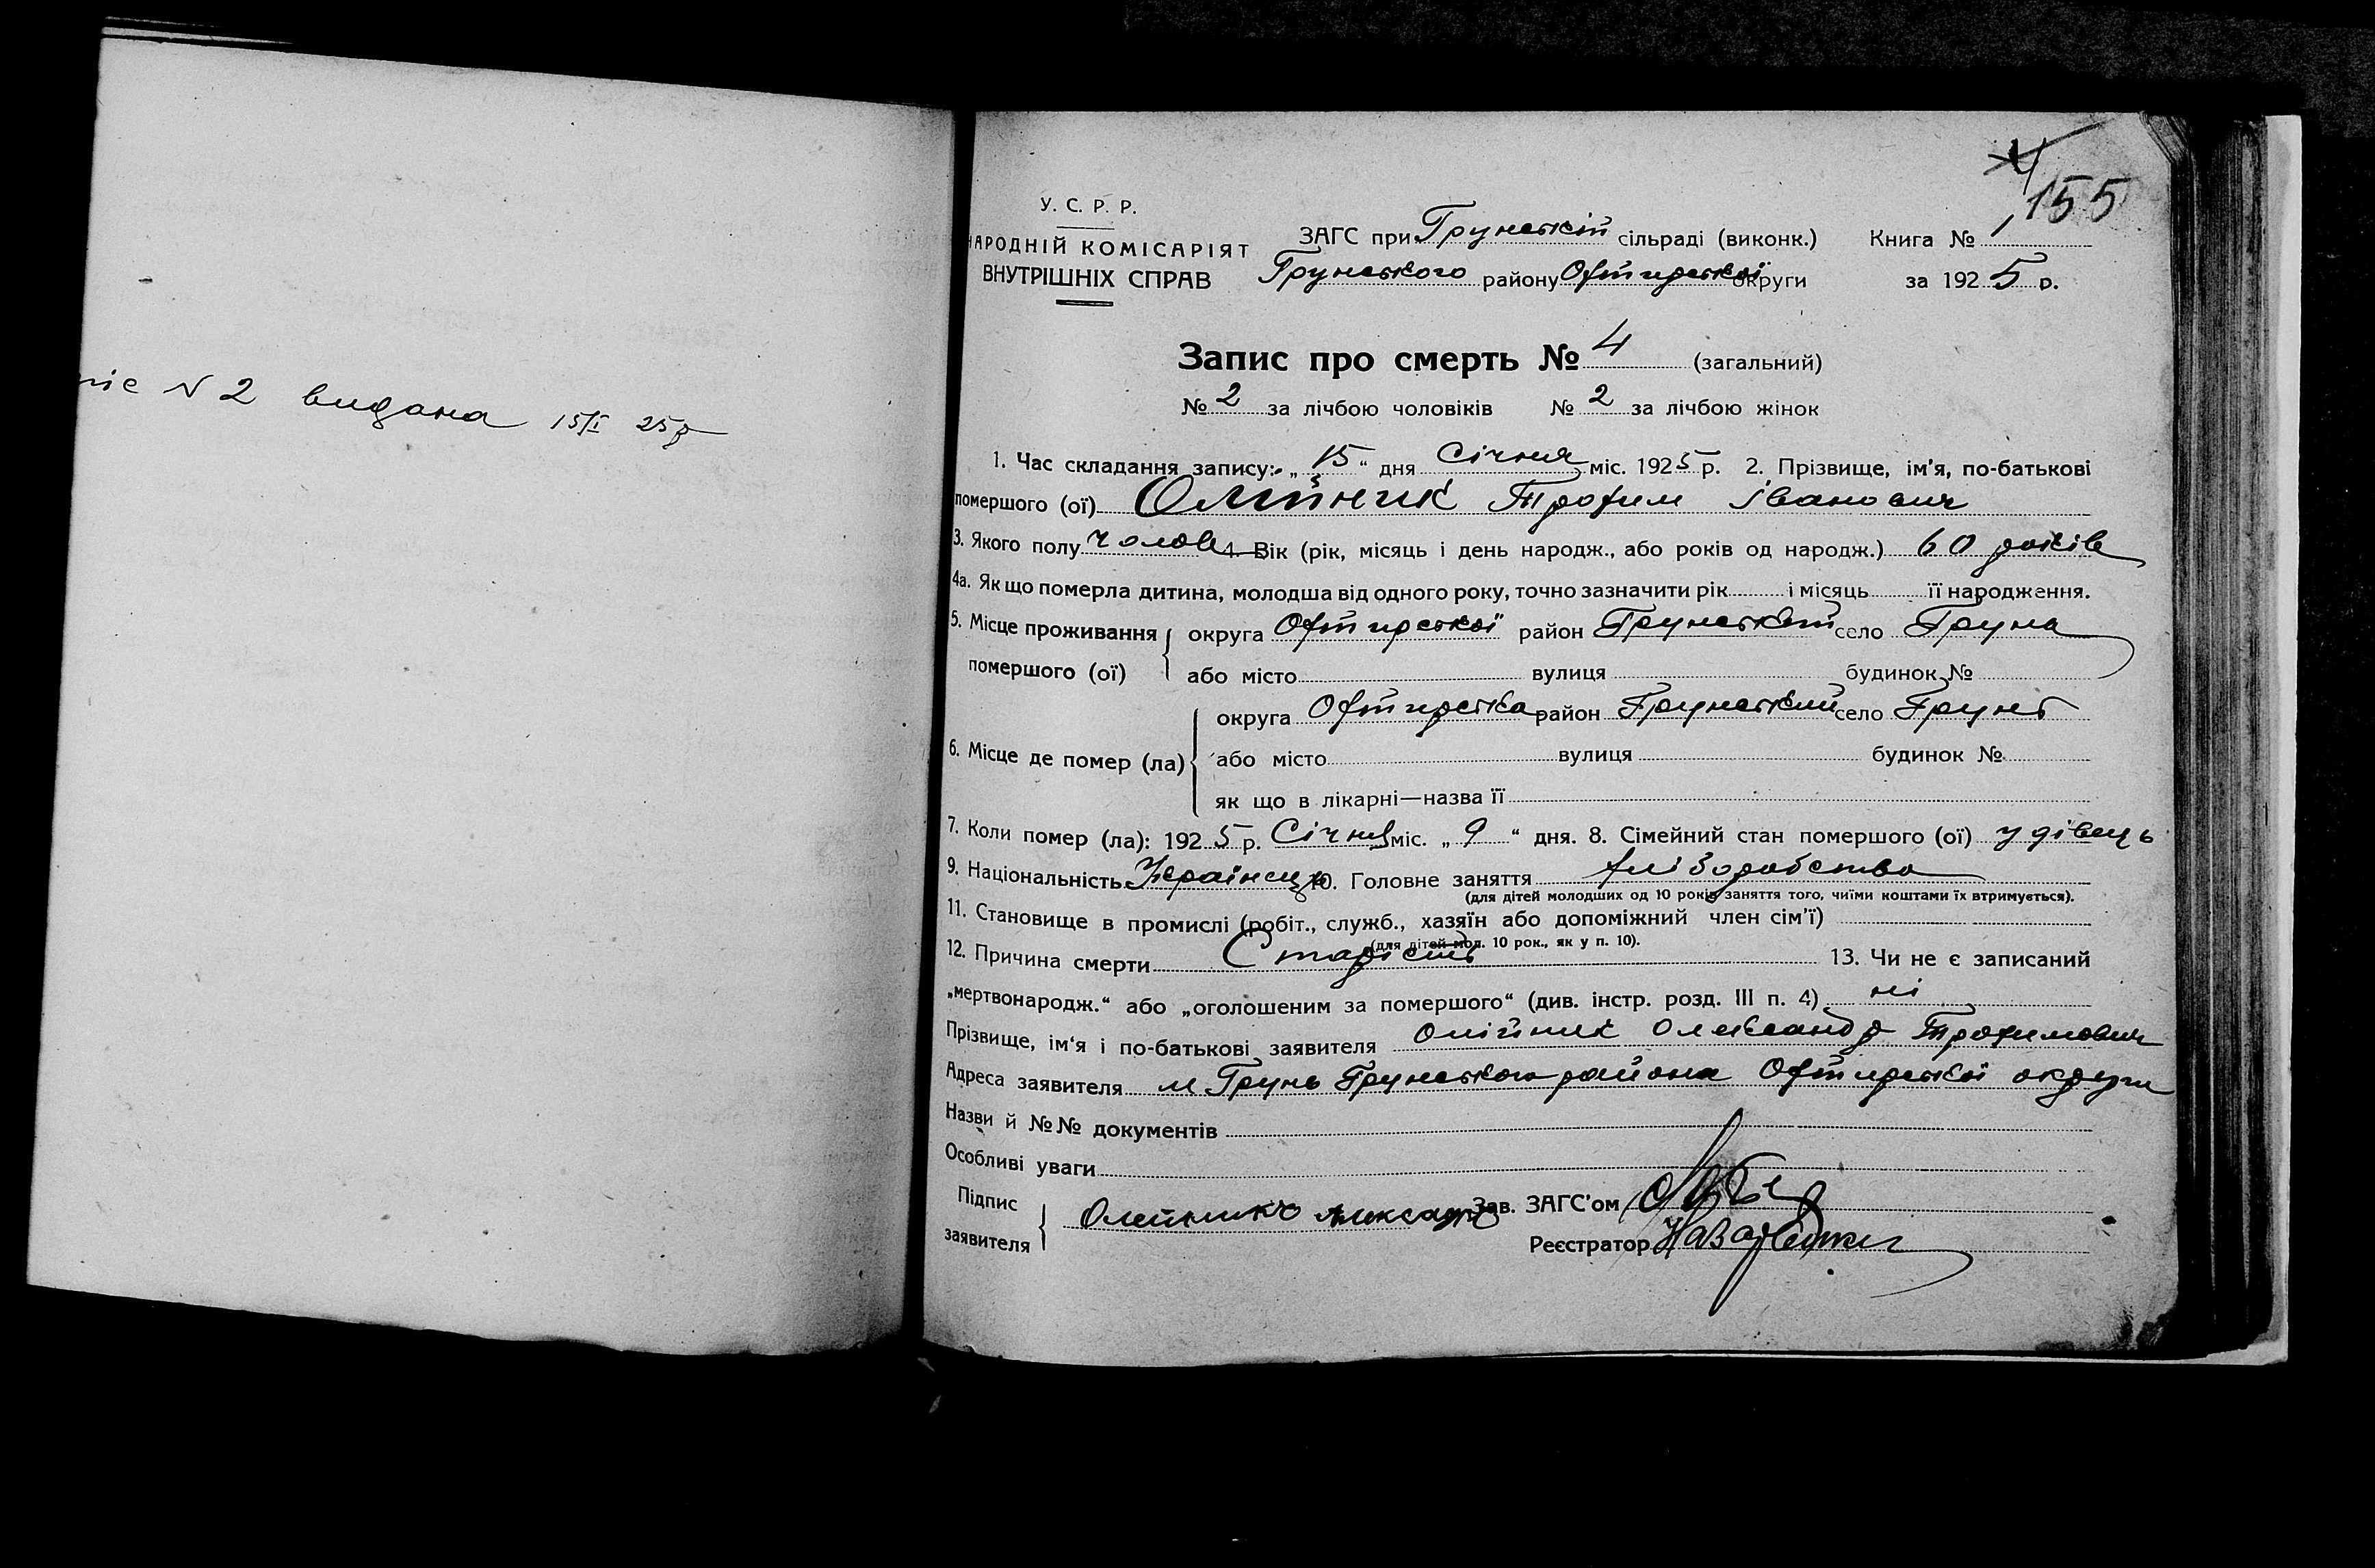 № 2 видана 15/I 25 р
155
У. С. Р. Р.
НАРОДНІЙ КОМІСАРІЯТ
ВНУТРІШНІХ СПРАВ
ЗАГС при Грунській сільраді (виконк.) Книга № 1
Грунського району Охтирської округи за 1925 р.
Запис про смерть № 4 (загальний)
№ 2 за лічбою чоловіків № 2 за лічбою жінок
1. Час складання запису: „15“ дня Січня міс. 1925 р. 2. Прізвище, ім'я, по-батькові
помершого (ої) Олійник Трохим Іванович
3. Якого полу чолов 4. Вік (рік, місяць і день народж., або років од народж.) 60 років
4а. Як що померла дитина, молодша від одного року, точно зазначити рік і місяць її народження.
5. Місце проживання помершого (ої) округа Охтирської район Грунський село Груна
або місто вулиця будинок №
6. Місце де помер (ла) округа Охтирська район Грунський село Грунь
або місто вулиця будинок №
як що в лікарні—назва її
7. Коли помер (ла): 1925 р. Січня міс. „9“ дня. 8. Сімейний стан помершого (ої) удівець
9. Національність Українець 10. Головне заняття хліборобство
(для дітей молодших од 10 років заняття того, чиїми коштами їх втримується).
11. Становище в промислі (робіт., служб., хазяїн або допоміжний член сім'ї)
(для дітей мол. 10 рок., як у п. 10).
12. Причина смерти Старість 13. Чи не є записаний
„мертвонародж.“ або „оголошеним за помершого“ (див. інстр. розд. III п. 4) ні
Прізвище, ім'я і по-батькові заявителя Олійник Олександр Трохимович
Адреса заявителя м Грунь Грунського района Охтирської округи
Назви й №№ документів
Особливі уваги
Підпис заявителя Олейникъ Александ Зав. ЗАГС'ом
Реєстратор